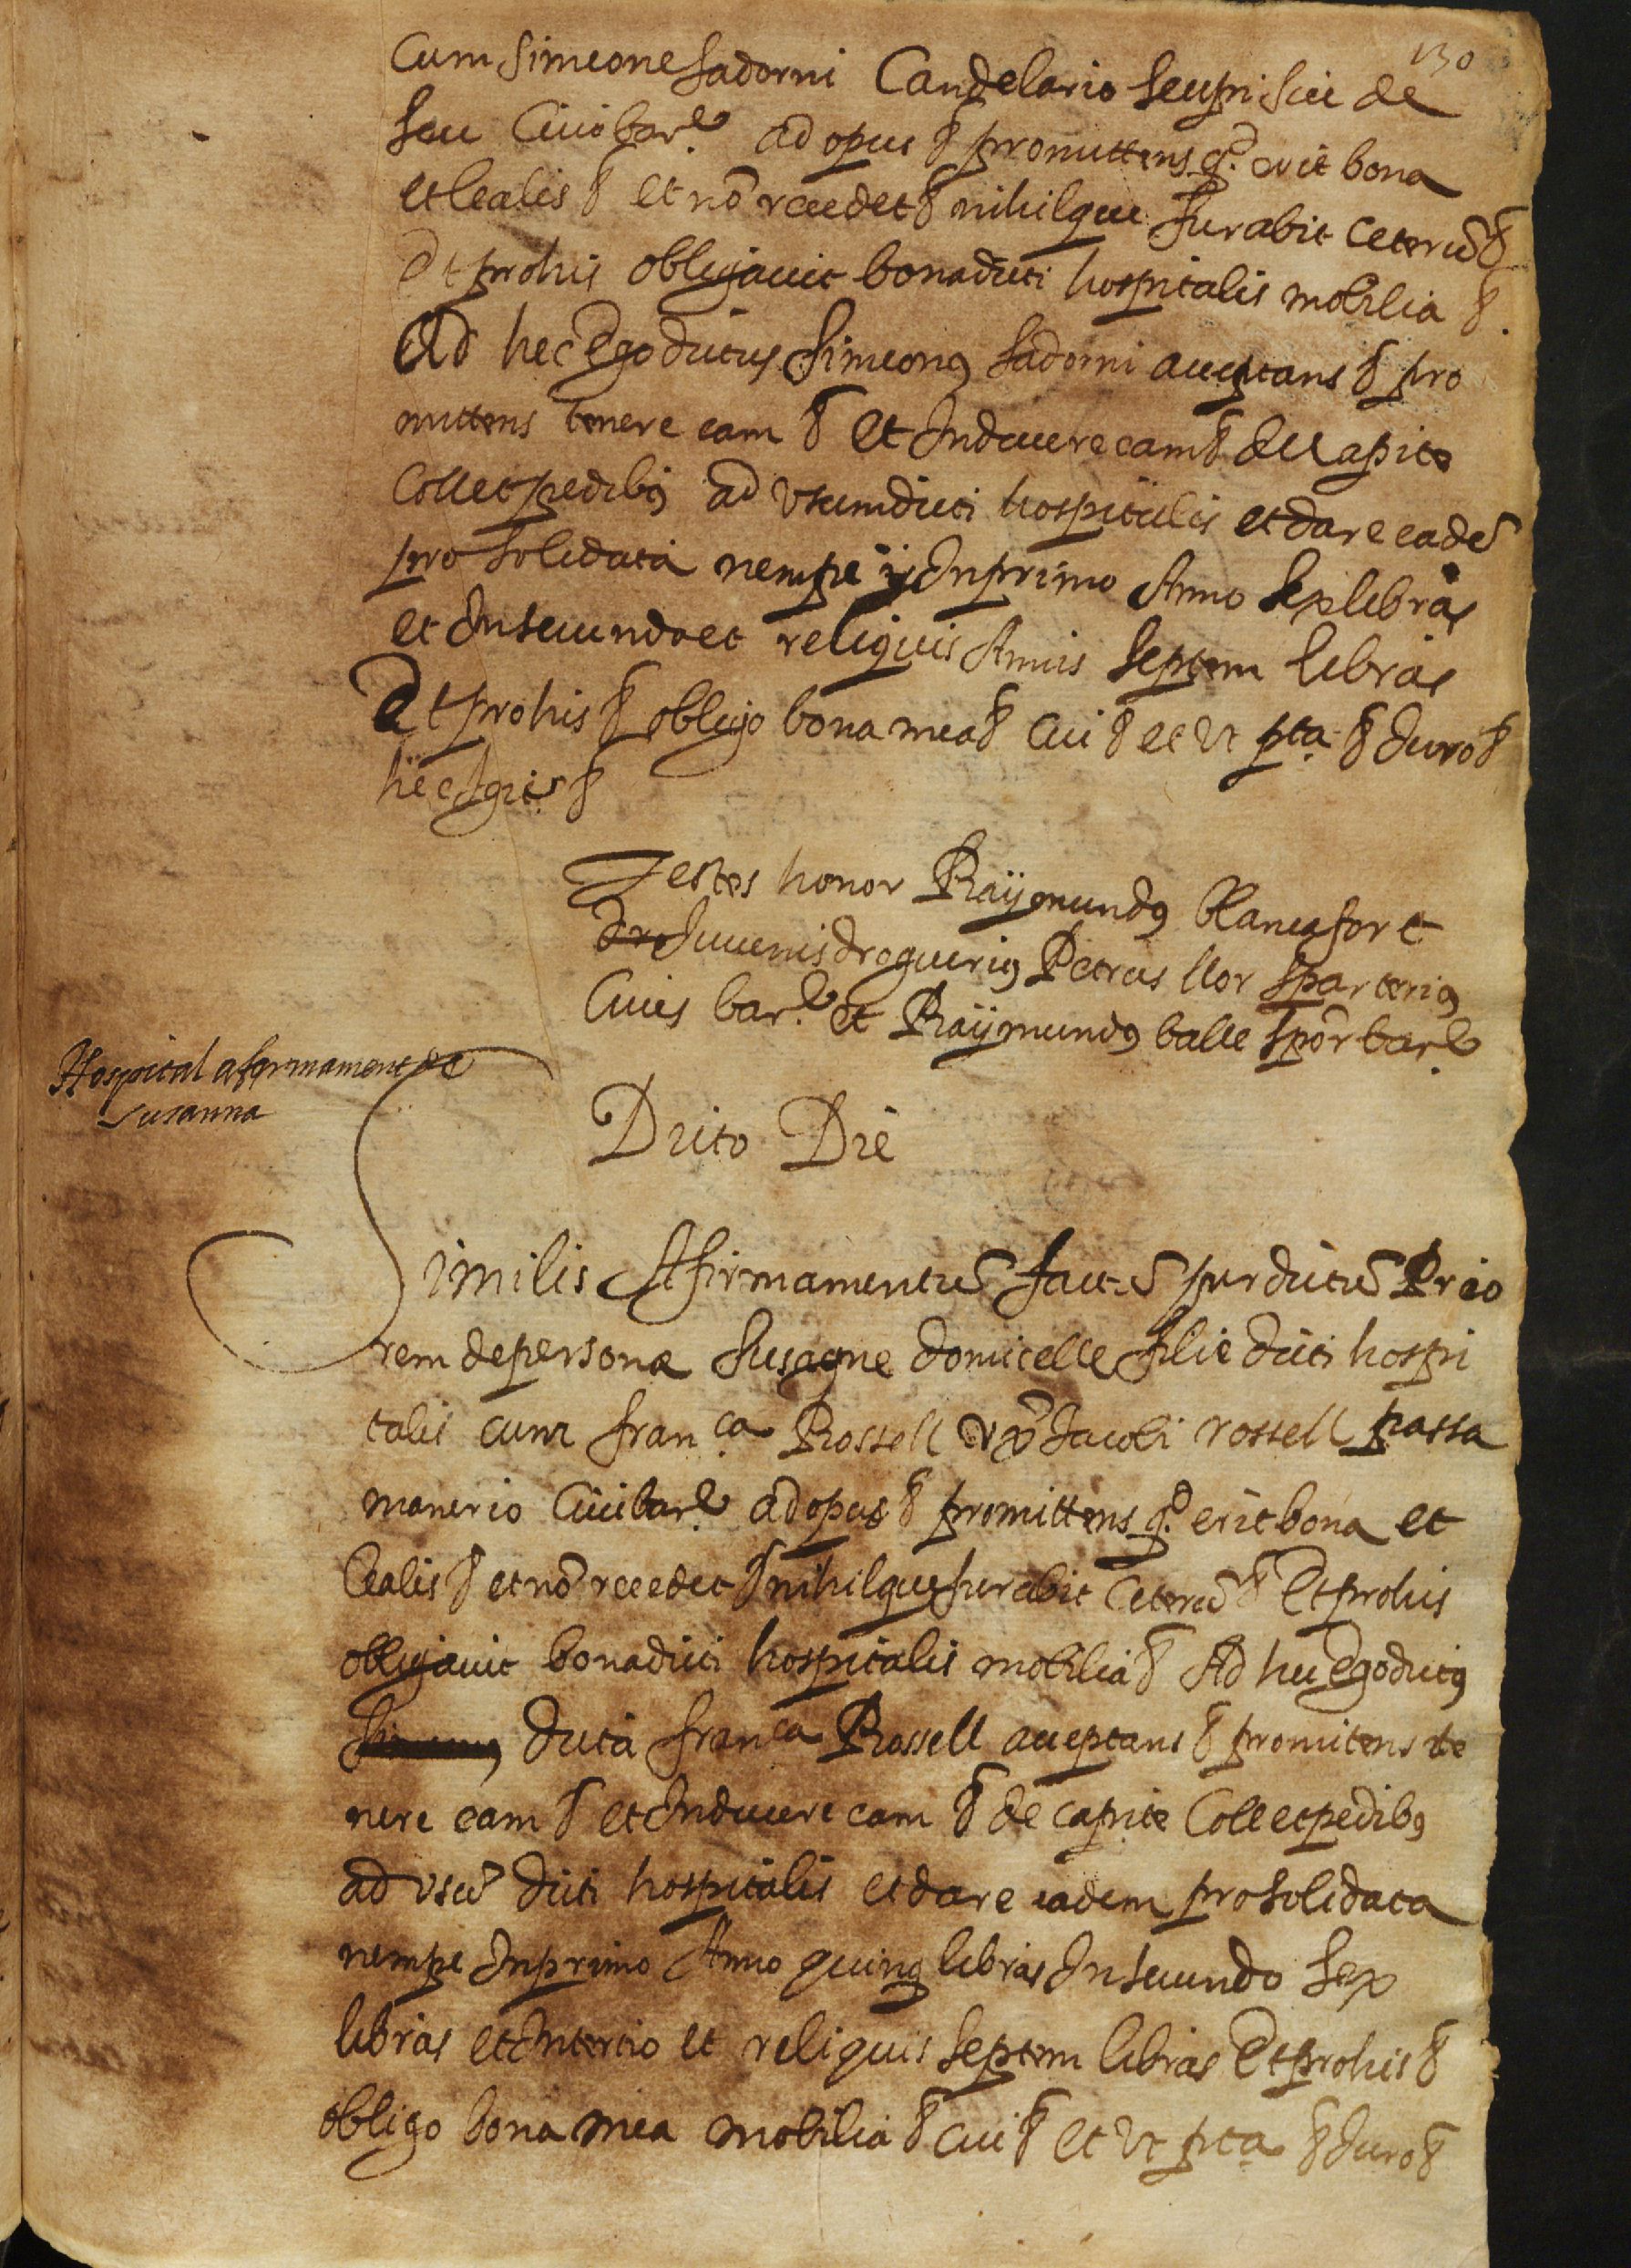 130
Cum Simeone Sadorni Candelario seu pri sui de
seu Civi bar.e ad opus & promittens q.d erit bona
et lealis & et nō recedet & nihilque furabit ceterū &
Et pro his obligavit bona dicti hospitalis mobilia &.
Ad hec Ego dictus Simeonꝰ Sadorni acceptans & pro
mittens tenere eam & et Induere eam & de capite
Coll et pedibꝰ ad usum dicti hospitalis et dare eadē
pro solidata nempe In primo Anno sex libras
et In secundo et reliquis Annis septem libras
Et pro his & obligo bona mea & cui & et Ut pta & Juro &
hec Igit &
Testes honor Raÿmundꝰ Blancafort
Juvenis drogueriꝰ Petrus llor sparteriꝰ
Cives bar.e et Raÿmundꝰ balle spōr bar.e
Hospital afermament de
Susanna
Dicto Die
Similis Afirmamentū factū per dictū Prio
rem de persona Susagne domicelle filie dicti hospi
talis cum fran.ca Rossell uxō Jacobi rossell passa
manerio Civi bar.e ad opus & promittens q.d erit bona et
lealis & et nō recedet & nihilque furabit Ceterū & Et pro his
obligavit bona dicti hospitalis mobilia & Ad hec Ego dictꝰ
dicta fran.ca Rossell acceptans & promitens te
nere eam & et Induere eam & de capite Coll et pedibꝰ
ad usū dicti hospitalis et dare eadem pro solidata
nempe In primo Anno quinq libras In secundo sex
libras et In tertio et reliquis septem libras Et pro his &
obligo bona mea mobilia & cui & et Ut pta & Juro &